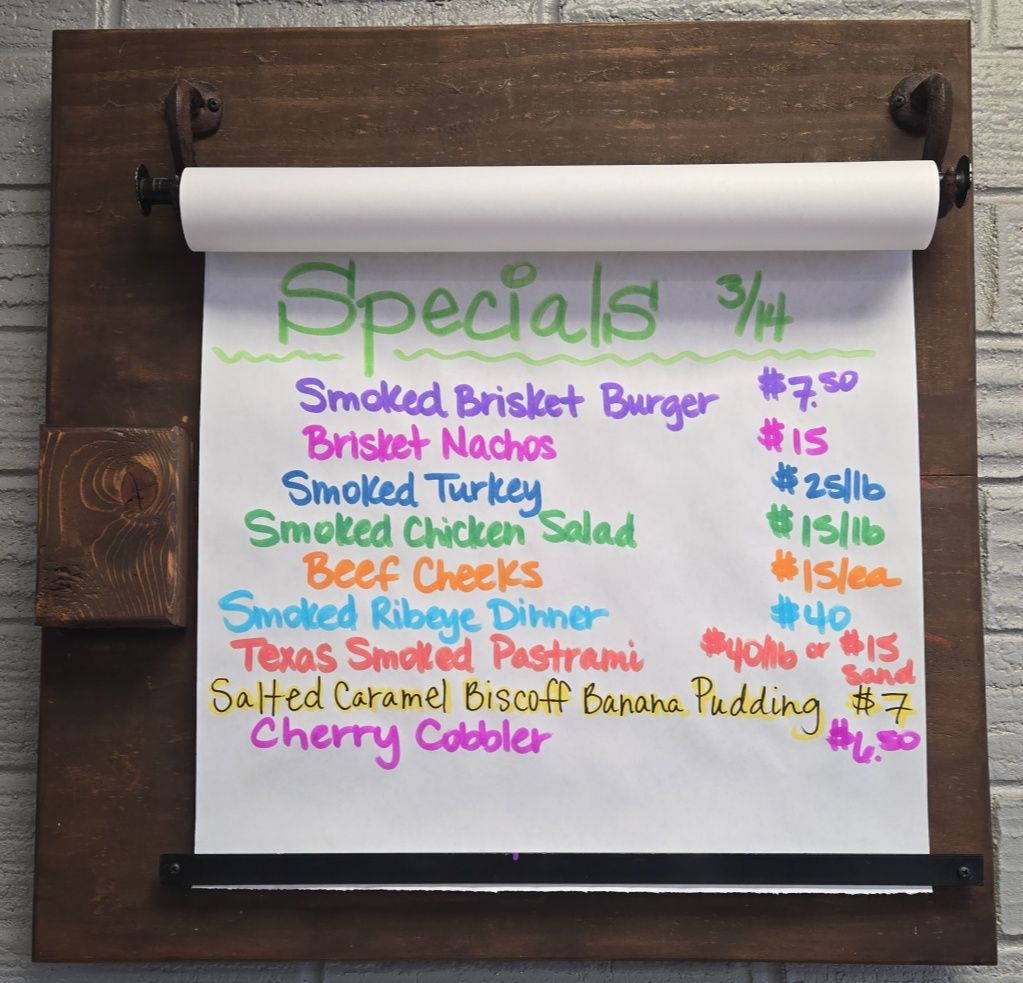 Specials 3/14
Smoked Brisket Burger $7.50
Brisket Nachos $15
Smoked Turkey $25/lb
Smoked Chicken Salad $15/lb
Beef Cheeks $15/ea
Smoked Ribeye Dinner $40
Texas Smoked Pastrami $40/lb or $15 Sand
Salted Caramel Biscoff Banana Pudding $7
Cherry Cobbler $6.50